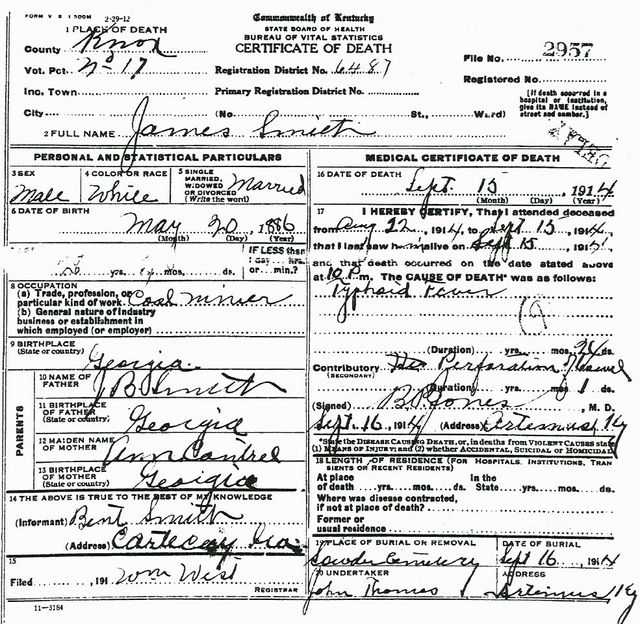 FORM V S 1 500M 2-29-12
Commonwealth of Kentucky
STATE BOARD OF HEALTH
BUREAU OF VITAL STATISTICS
CERTIFICATE OF DEATH
1 PLACE OF DEATH
County Knox
Vot. Pct. No 17
Inc. Town
City
Registration District No. 6487
Primary Registration District No.
(No. St., Ward)
File No. 2957
Registered No.
[If death occurred in a
hospital or institution,
give its NAME instead of
street and number.]
2 FULL NAME James Smith
PERSONAL AND STATISTICAL PARTICULARS
3 SEX
Male
4 COLOR OR RACE
White
5 SINGLE
MARRIED,
WIDOWED
OR DIVORCED
(Write the word)
Married
6 DATE OF BIRTH
May 20, 1886
(Month) (Day) (Year)
yrs. mos. ds.
IF LESS than
1 day hrs.
or min.?
8 OCCUPATION
(a) Trade, profession, or
particular kind of work Coal miner
(b) General nature of industry
business or establishment in
which employed (or employer)
9 BIRTHPLACE
(State or country)
Georgia
PARENTS
10 NAME OF
FATHER
J B Smith
11 BIRTHPLACE
OF FATHER
(State or country)
Georgia
12 MAIDEN NAME
OF MOTHER
Ann Cantrel
13 BIRTHPLACE
OF MOTHER
(State or country)
Georgia
14 THE ABOVE IS TRUE TO THE BEST OF MY KNOWLEDGE
(Informant) Bent Smith
(Address) Cartecay Ga.
15
Filed 191 Wm West
REGISTRAR
11-3184
MEDICAL CERTIFICATE OF DEATH
16 DATE OF DEATH
Sept. 15, 1914
(Month) (Day) (Year)
17 I HEREBY CERTIFY, That I attended deceased
from Aug 22, 1914, to Sept 15, 1914,
that I last saw him alive on Sept 15, 191
and that death occurred on the date stated above
at 10 P.m. The CAUSE OF DEATH* was as follows:
Typhoid Fever
(Duration) yrs. mos. 24 ds.
Contributory Perforation
(SECONDARY)
(Duration) yrs. mos. 1 ds.
(Signed) B.P. Jones, M. D.
Sept. 16, 1914 (Address) Artemus Ky
*State the DISEASE CAUSING DEATH, or, in deaths from VIOLENT CAUSES state
(1) MEANS OF INJURY; and (2) whether ACCIDENTAL, SUICIDAL or HOMICIDAL
18 LENGTH OF RESIDENCE (FOR HOSPITALS, INSTITUTIONS, TRAN
SIENTS OR RECENT RESIDENTS)
At place In the
of death yrs. mos. ds. State yrs. mos. ds.
Where was disease contracted,
if not at place of death?
Former or
usual residence
19 PLACE OF BURIAL OR REMOVAL
Cemetery
DATE OF BURIAL
Sept 16, 1914
20 UNDERTAKER
John Thomas
ADDRESS
Artemus Ky